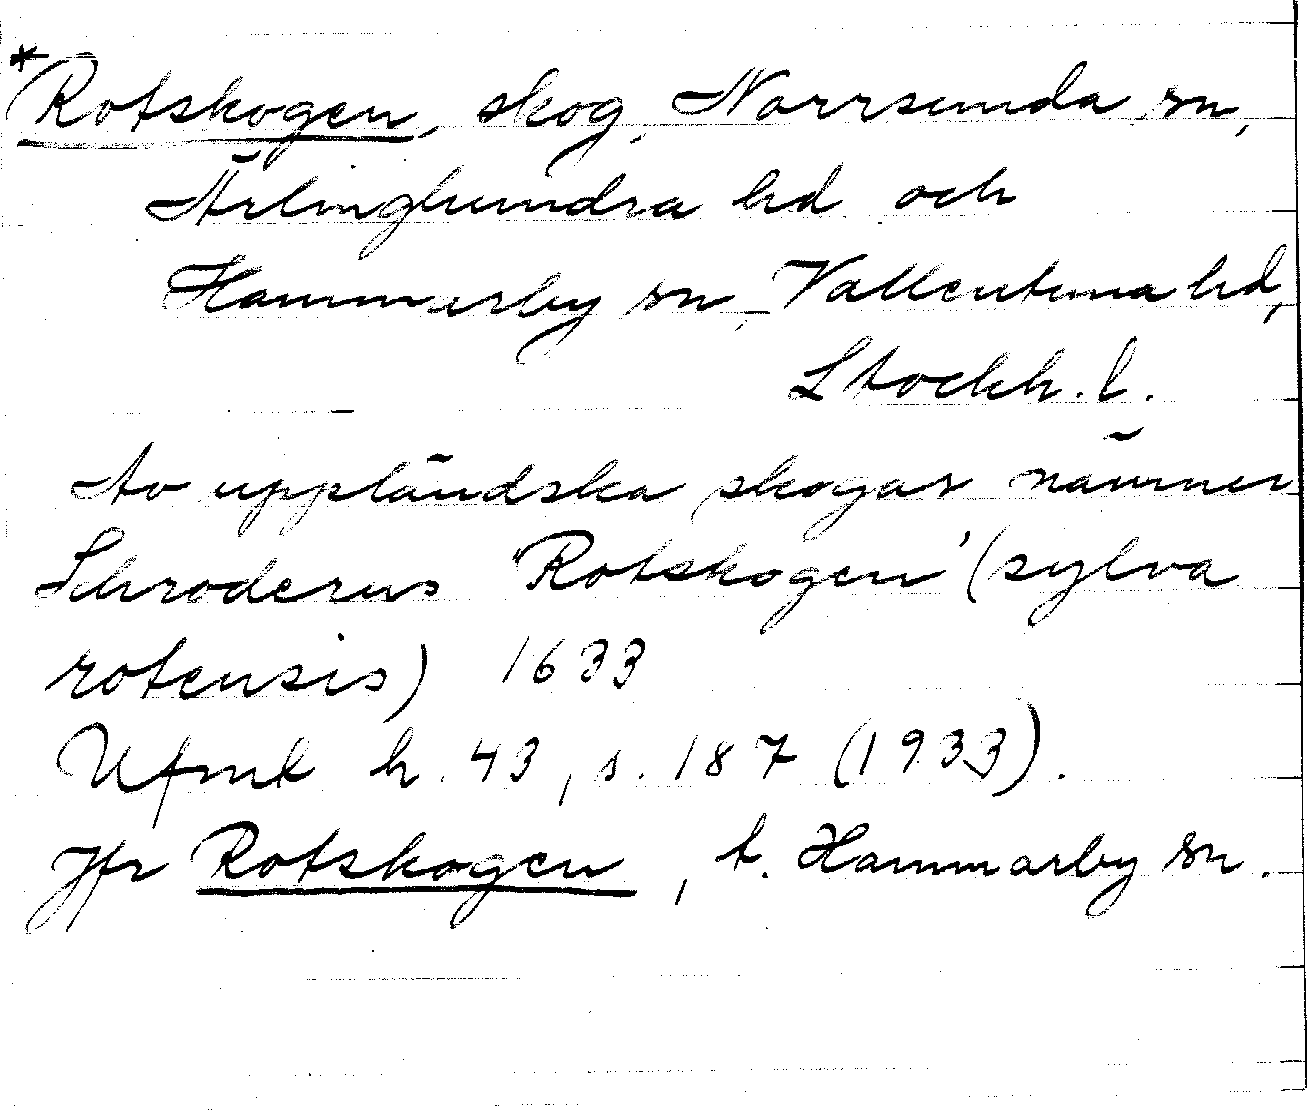 *Rotskogen, skog, Norrsunda sn,
Ärlinghundra hd och
Hammarby sn, Vallentuna hd,
Stockh. l.
Av uppländska skogar nämner
Schroderus 'Rotskogen' (sylva
rotensis) 1633
Ufmt h. 43, s. 187 (1933).
Jfr Rotskogen, t. Hammarby sn.